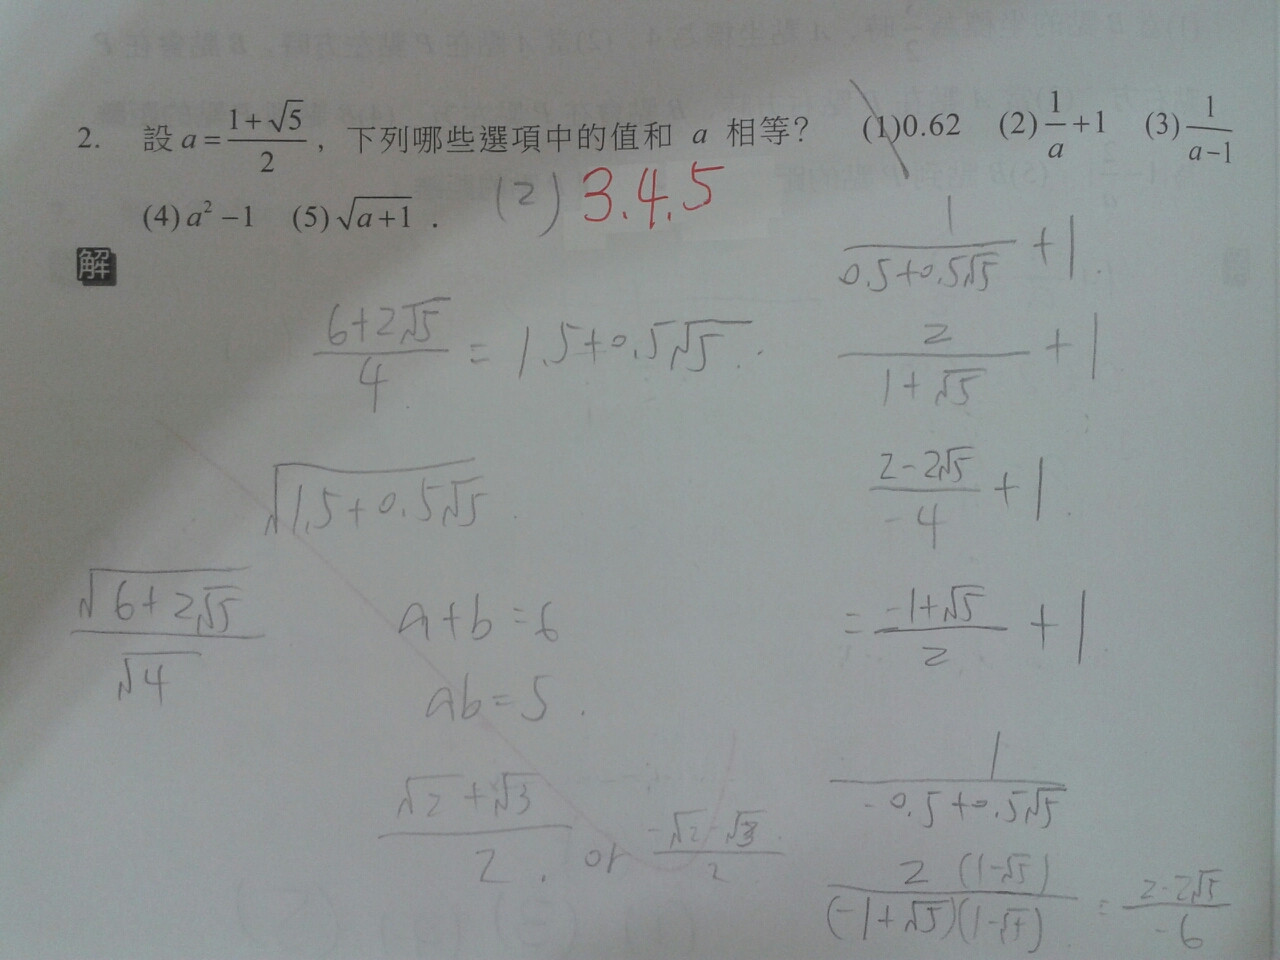 2. 設 a = \frac{1+\sqrt{5}}{2}，下列哪些選項中的值和 a 相等？ (1)0.62 (2)\frac{1}{a}+1 (3)\frac{1}{a-1}
(4)a² −1 (5)\sqrt{a+1}． (2) 3.4.5
解
\frac{1}{0.5+0.5\sqrt{5}} + 1
\frac{6+2\sqrt{5}}{4} = 1.5+0.5\sqrt{5}
\frac{2}{1+\sqrt{5}} + 1
\sqrt{1.5+0.5\sqrt{5}}
\frac{2-2\sqrt{5}}{-4} + 1
\frac{\sqrt{6+2\sqrt{5}}}{\sqrt{4}}
a+b=6
= \frac{-1+\sqrt{5}}{2} + 1
ab=5
\frac{\sqrt{2}+\sqrt{3}}{2} or \frac{-\sqrt{2}-\sqrt{3}}{2}
\frac{1}{-0.5+0.5\sqrt{5}}
\frac{2 (1-\sqrt{5})}{(-1+\sqrt{5})(1-\sqrt{5})} = \frac{2-2\sqrt{5}}{-6}